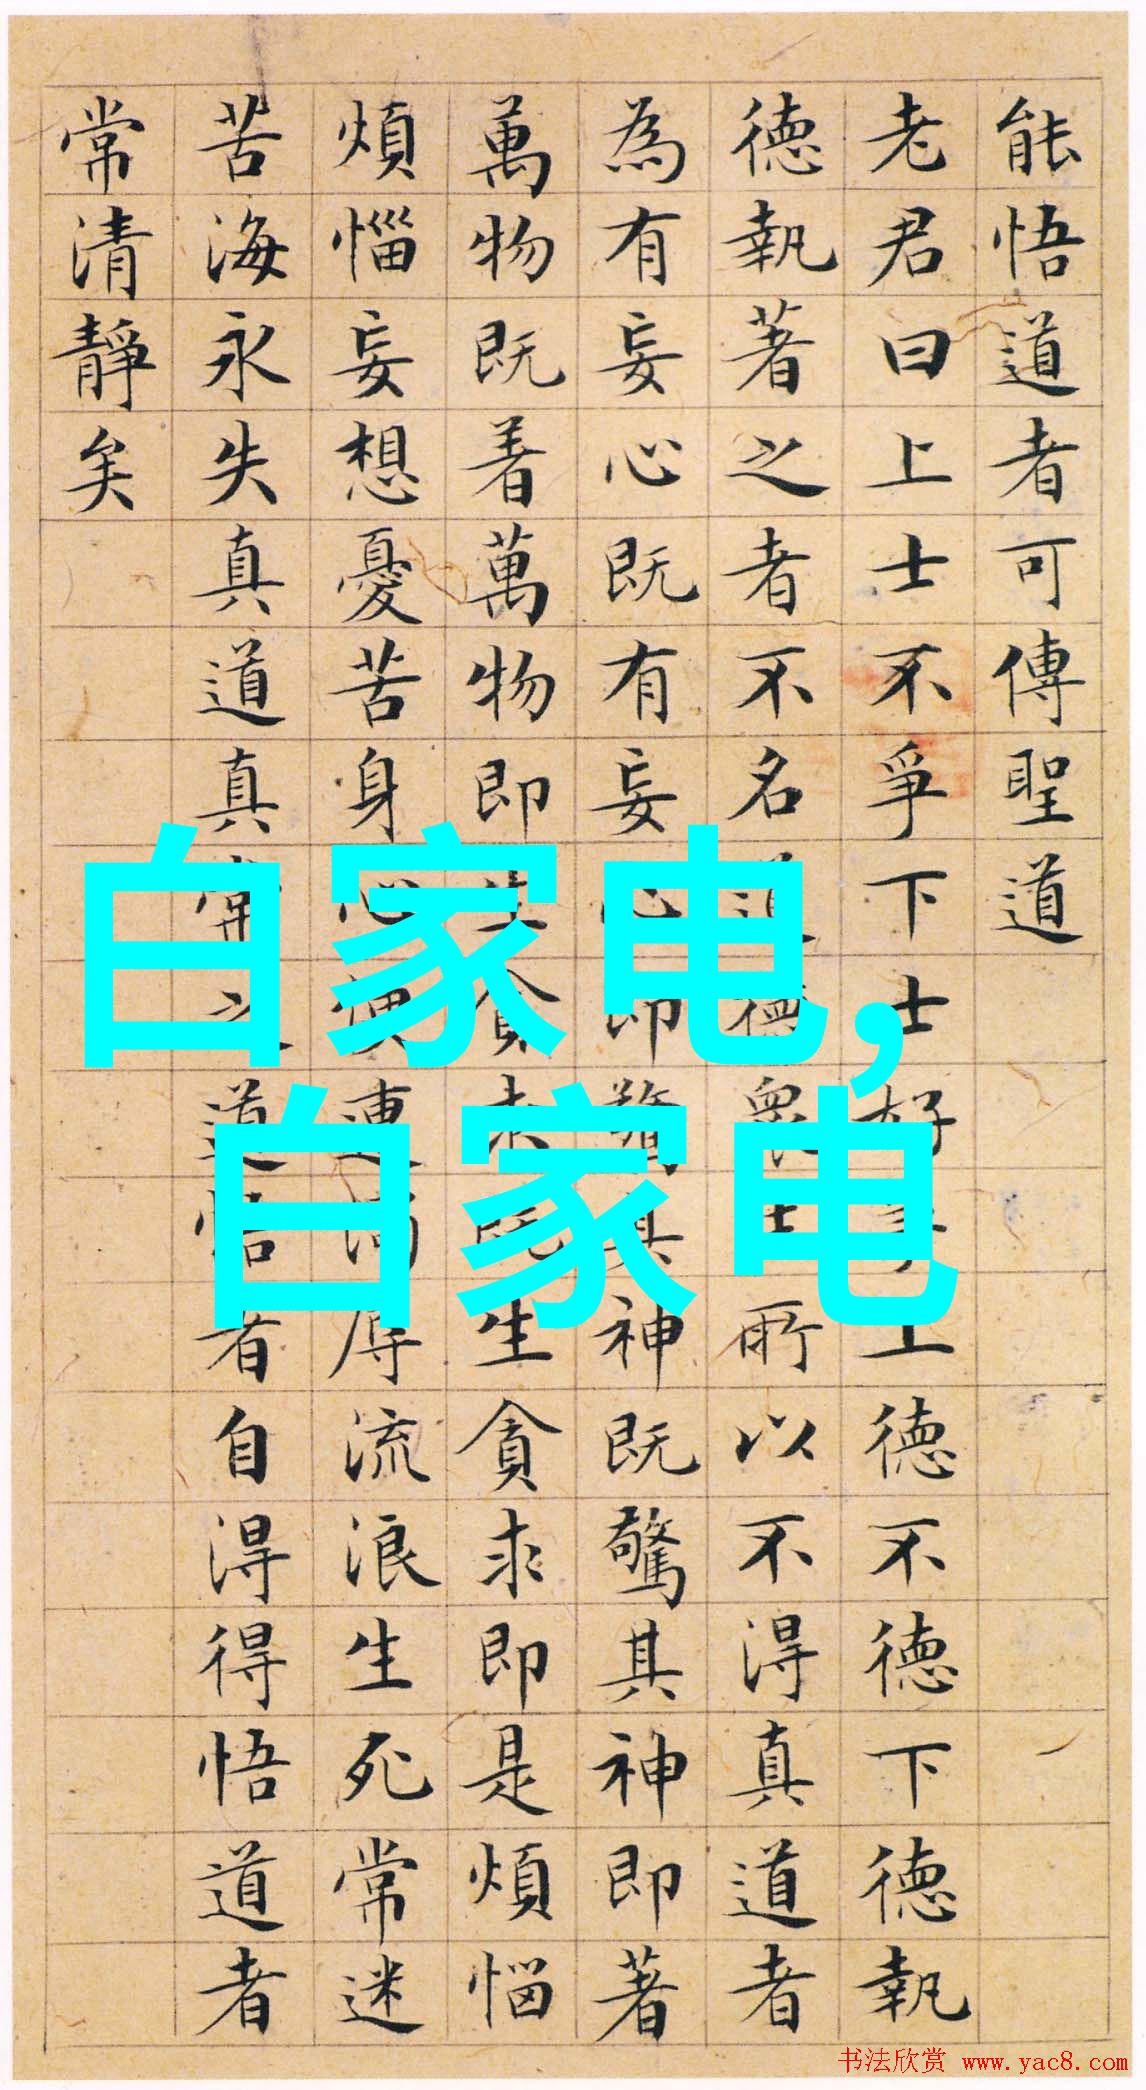 能悟道者可傳聖道
老君曰上士不爭下士好爭上德不德下德執
德執著之者不名道德眾生所以不得真道者
為有妄心既有妄心即驚其神既驚其神即著
萬物既着萬物即生貪求既生貪求即是煩惱
煩惱妄想憂苦身心便遭濁辱流浪生死常迷
苦海永失真道真常之道悟者自得得悟道者
常清靜矣
白家电,
白家电
书法欣赏 www.yac8.com